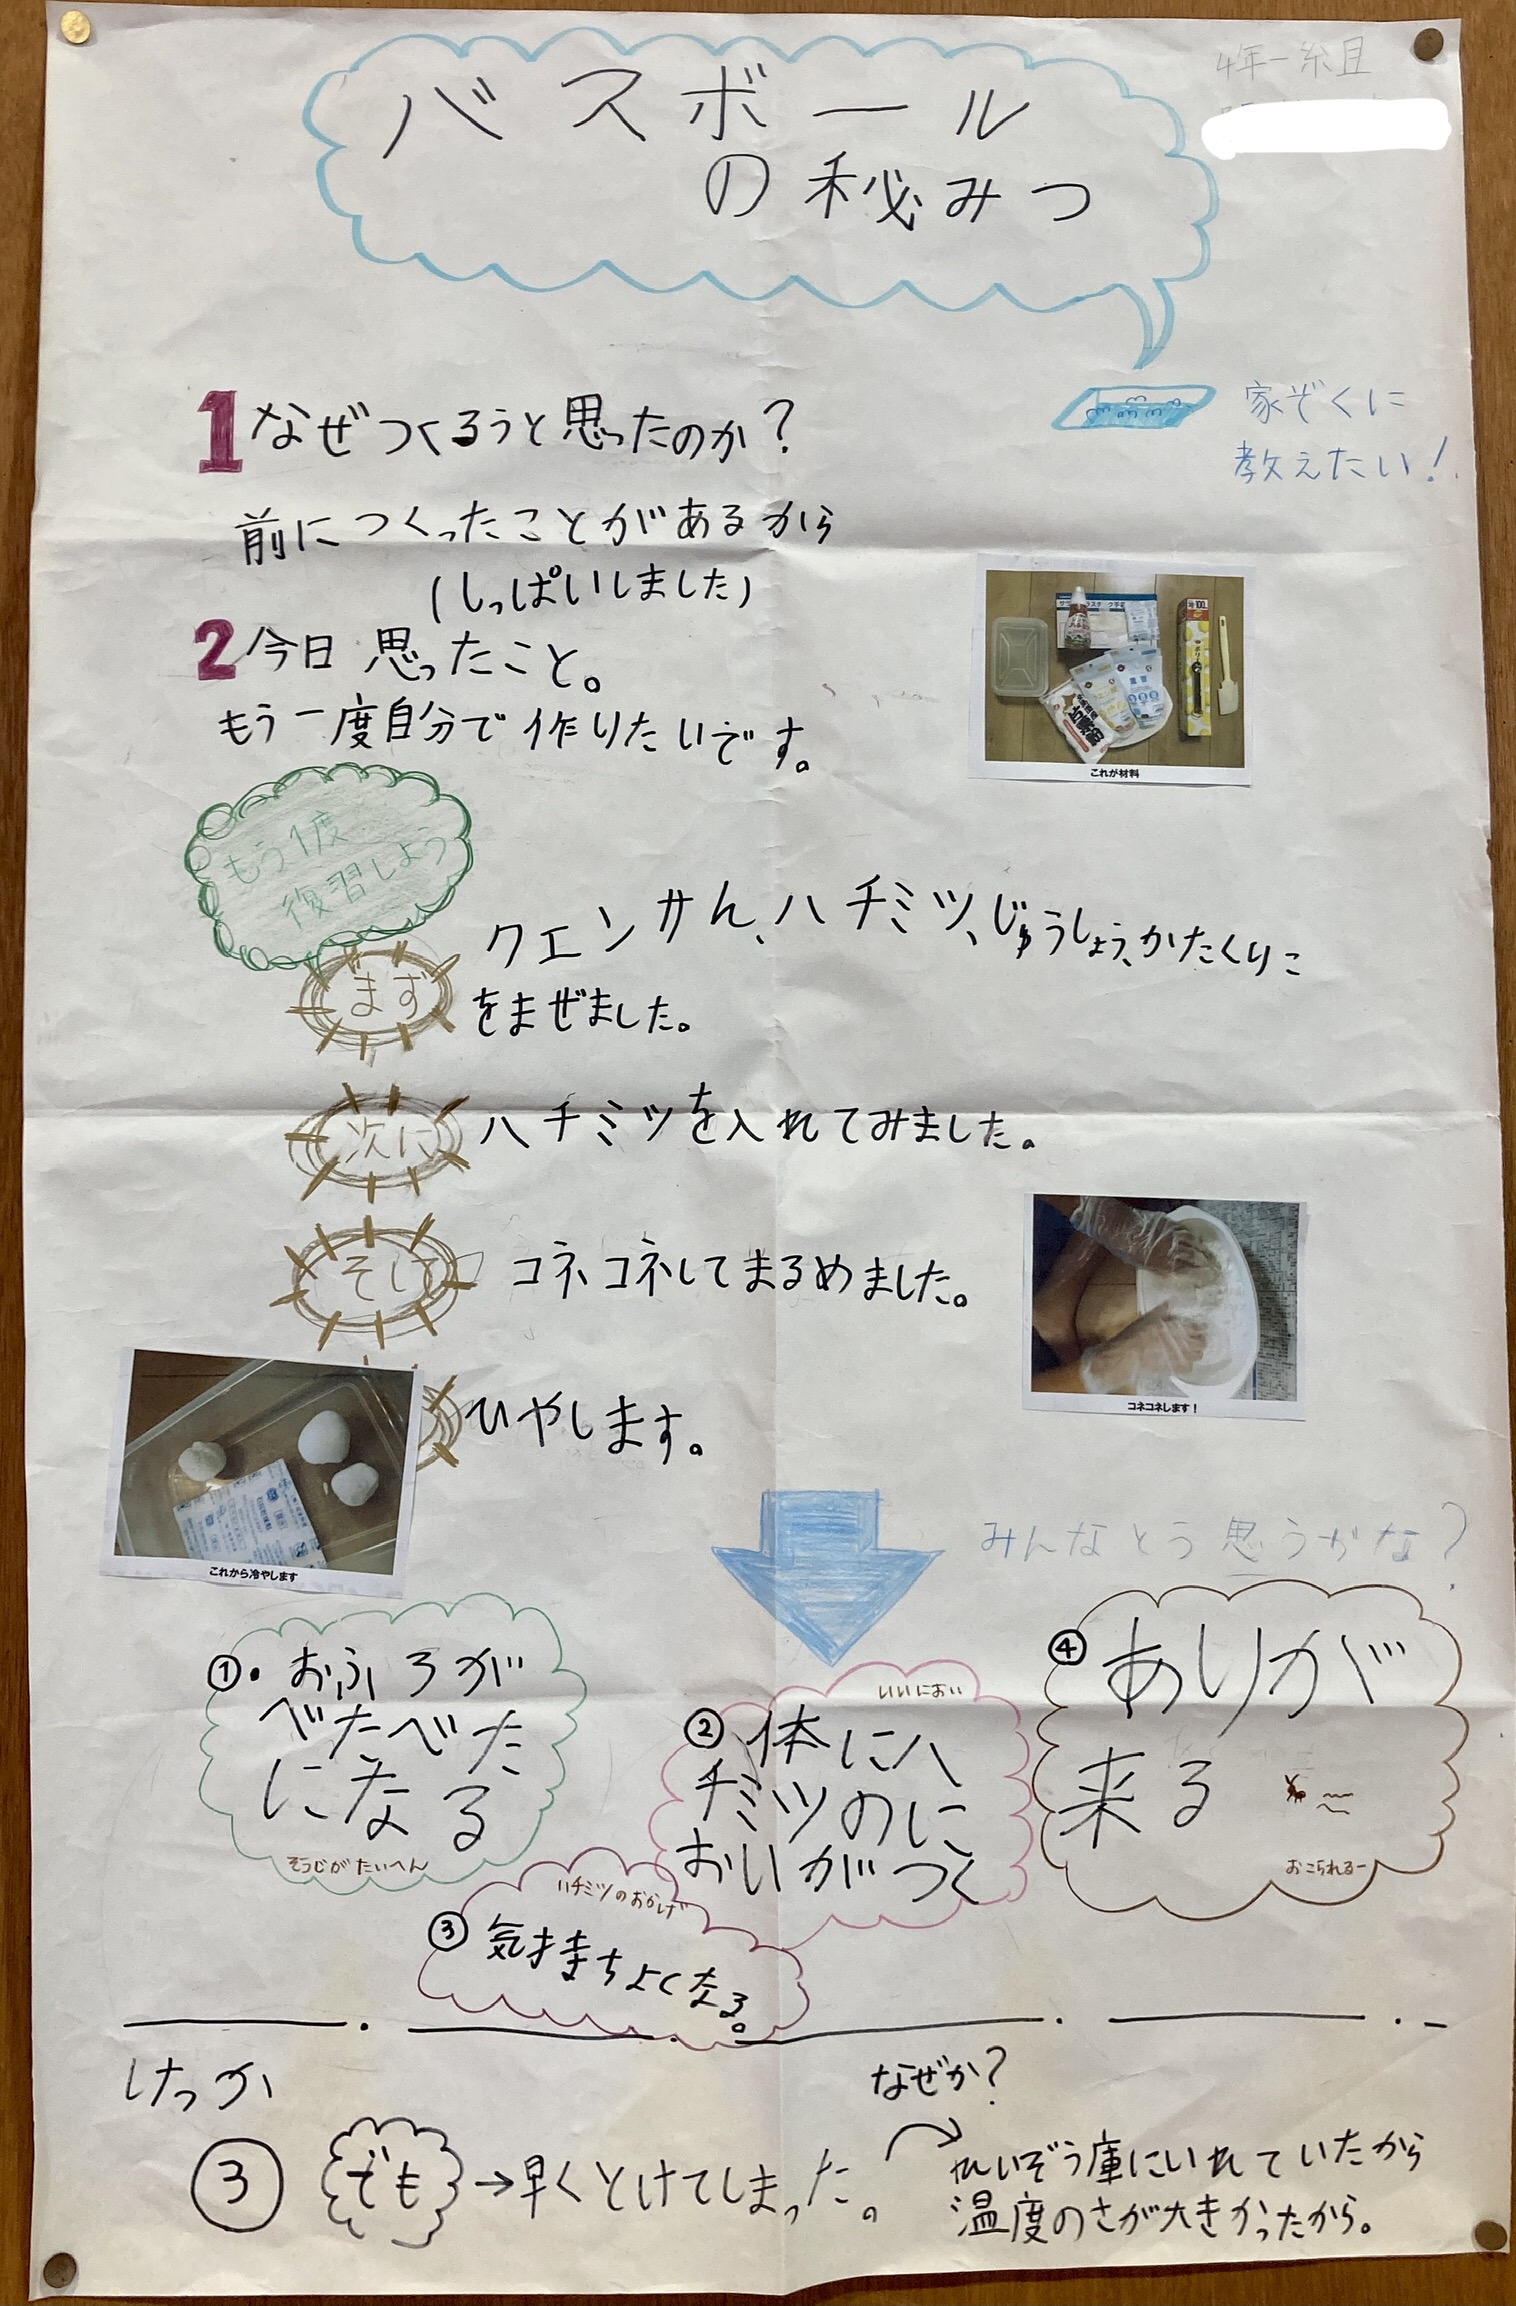 4年一組
バスボール
の秘みつ
家ぞくに
教えたい！
1 なぜつくろうと思ったのか？
前につくったことがあるから
(しっぱいしました)
2 今日思ったこと。
もう一度自分で作りたいです。
これが材料
もう1度
復習しよう
まず
クエンサん、ハチミツ、じゅうしょう、かたくりこ
をまぜました。
次に
ハチミツを入れてみました。
そして
コネコネしてまるめました。
コネコネします！
ひやします。
これから冷やします
みんなどう思うかな？
①・おふろが
べたべた
になる
そうじがたいへん
いいにおい
②体にハ
チミツのに
おいがつく
ハチミツのおかげ
③気持まちよくなる。
④ありが
来る
おこられるー
けっか
③ でも→早くとけてしまった。
なぜか？
れいぞう庫にいれていたから
温度のさが大きかったから。